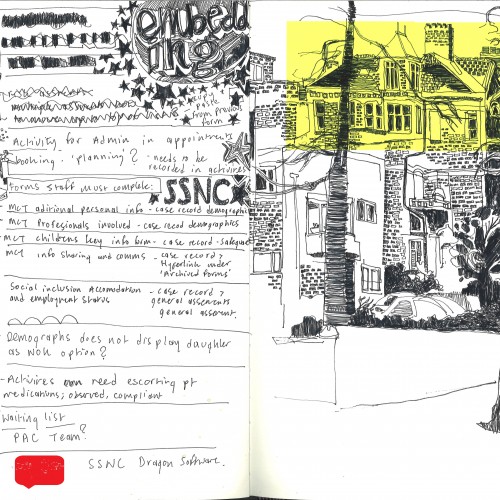 embedd
ing
copy
paste
from previous
form
Activity for Admin in appointments
booking. 'planning'? - needs to be
recorded in activities
Forms staff must complete:
SSNC
MCT aditional personal info - case record demographics
MCT Profesionals involved - case record demographics
MCT childrens key info form - case record - safeguard
MCT info sharing and comms - case record >
Hyperlink under
'Archived Forms'
Social inclusion Accomodation - case record >
and employment status general assesments
general assesment.
Demographs does not display daughter
as NOK option?
- Activires need escorting pt
medications; observed, compliant
Waiting list
PAC Team?
SSNC Dragon Software.